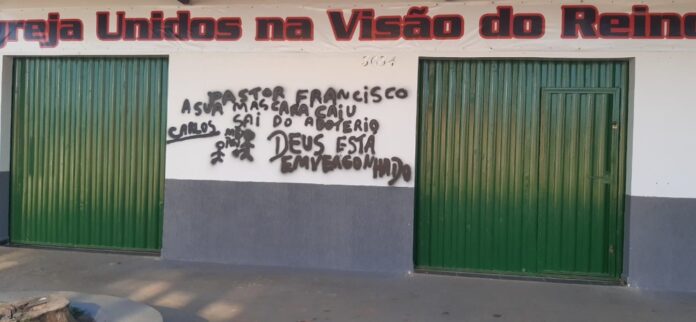 greja Unidos na Visão do Reino
3634
PASTOR FRANCISCO
A SUA MASCARA CAIU
SAI DO ADOTERIO
CARLOS
DEUS ESTA
EMVERGONHADO